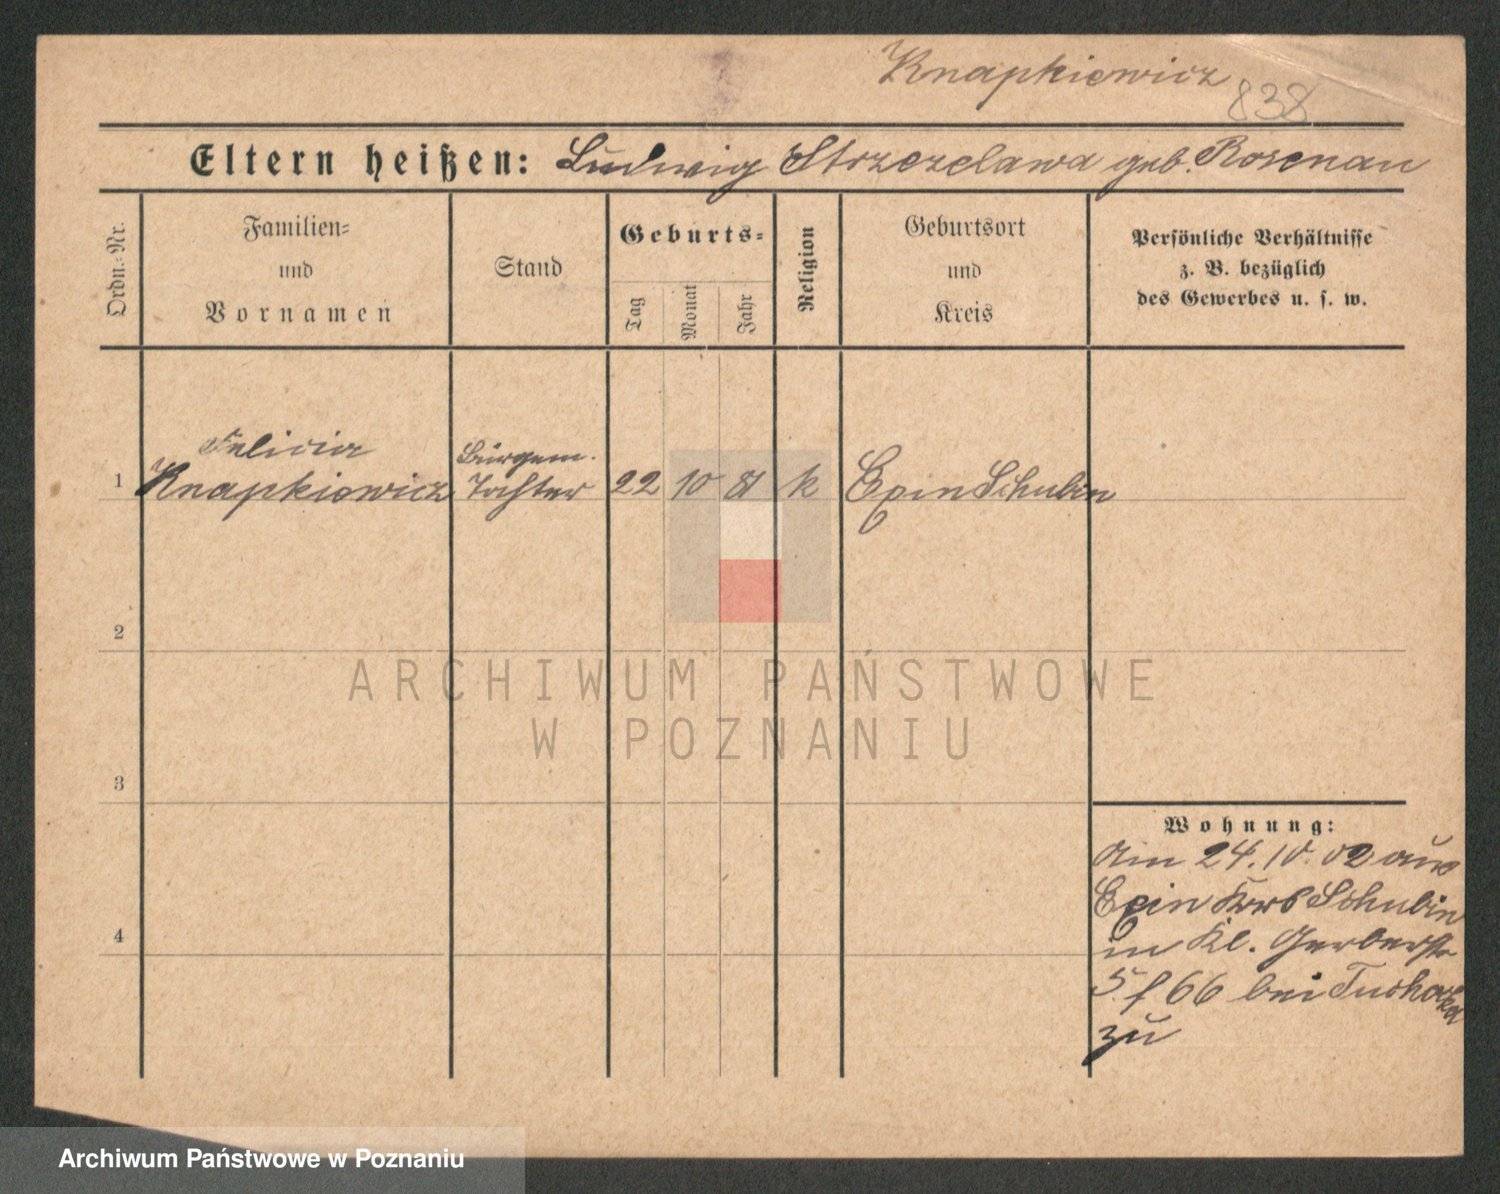 Knapkiewicz
838
Eltern heißen: Ludwig Strzezlawa geb. Rosenau
Ordn.-Nr.
Familien-
und
Vornamen
Stand
Geburts-
Tag
Monat
Jahr
Religion
Geburtsort
und
Kreis
Persönliche Verhältnisse
z. B. bezüglich
des Gewerbes u. s. w.
Felicia
1 Knapkiewicz
Bürgerm.
Tochter
22 10 81 k Exin Schubin
2
3
4
Wohnung:
Am 24.10.02 aus
Exin Krs Schubin
in Kl. Gerberstr
5 f 66 bei
zu
ARCHIWUM PAŃSTWOWE
W POZNANIU
Archiwum Państwowe w Poznaniu